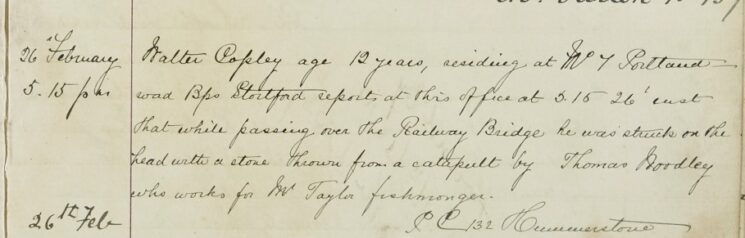 26 February
5.15 pm
Walter Copley age 12 years, residing at No 7 Portland
road Bps Stortford reports at this office at 5.15 26' inst
that while passing over the Railway Bridge he was struck on the
head with a stone thrown from a catapult by Thomas Woodley
who works for Mr Taylor fishmonger.
P C 132 Hummerstone
26th Feb